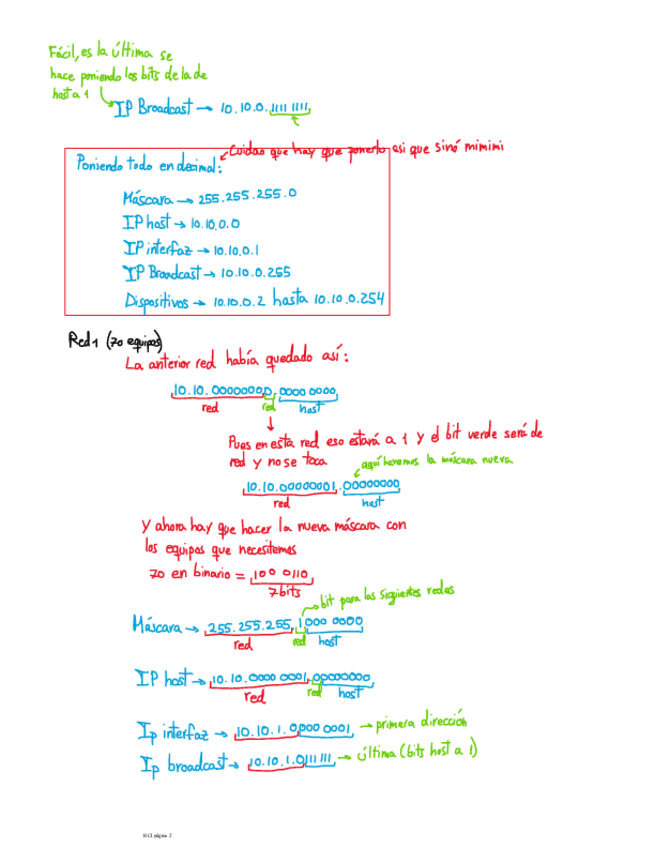 Fácil, es la última se
hace poniendo los bits de la de
host a 1
IP Broadcast → 10.10.0.1111 1111
Cuidao que hay que ponerlo asi que sinó mimimi
Poniendo todo en decimal:
Máscara → 255.255.255.0
IP host → 10.10.0.0
IP interfaz → 10.10.0.1
IP Broadcast → 10.10.0.255
Dispositivos → 10.10.0.2 hasta 10.10.0.254
Red 1 (70 equipos)
La anterior red había quedado así:
10.10.00000000.00000000
red red host
Pues en esta red eso estará a 1 y el bit verde será de
red y no se toca
aquí haremos la máscara nueva
10.10.00000001.00000000
red host
Y ahora hay que hacer la nueva máscara con
los equipos que necesitemos
70 en binario = 100 0110
7 bits
bit para las siguientes redes
Máscara → 255.255.255.1000 0000
red red host
IP host → 10.10.0000 0001.00000000
red red host
Ip interfaz → 10.10.1.0000 0001 → primera dirección
Ip broadcast → 10.10.1.0111 111 → última (bits host a 1)